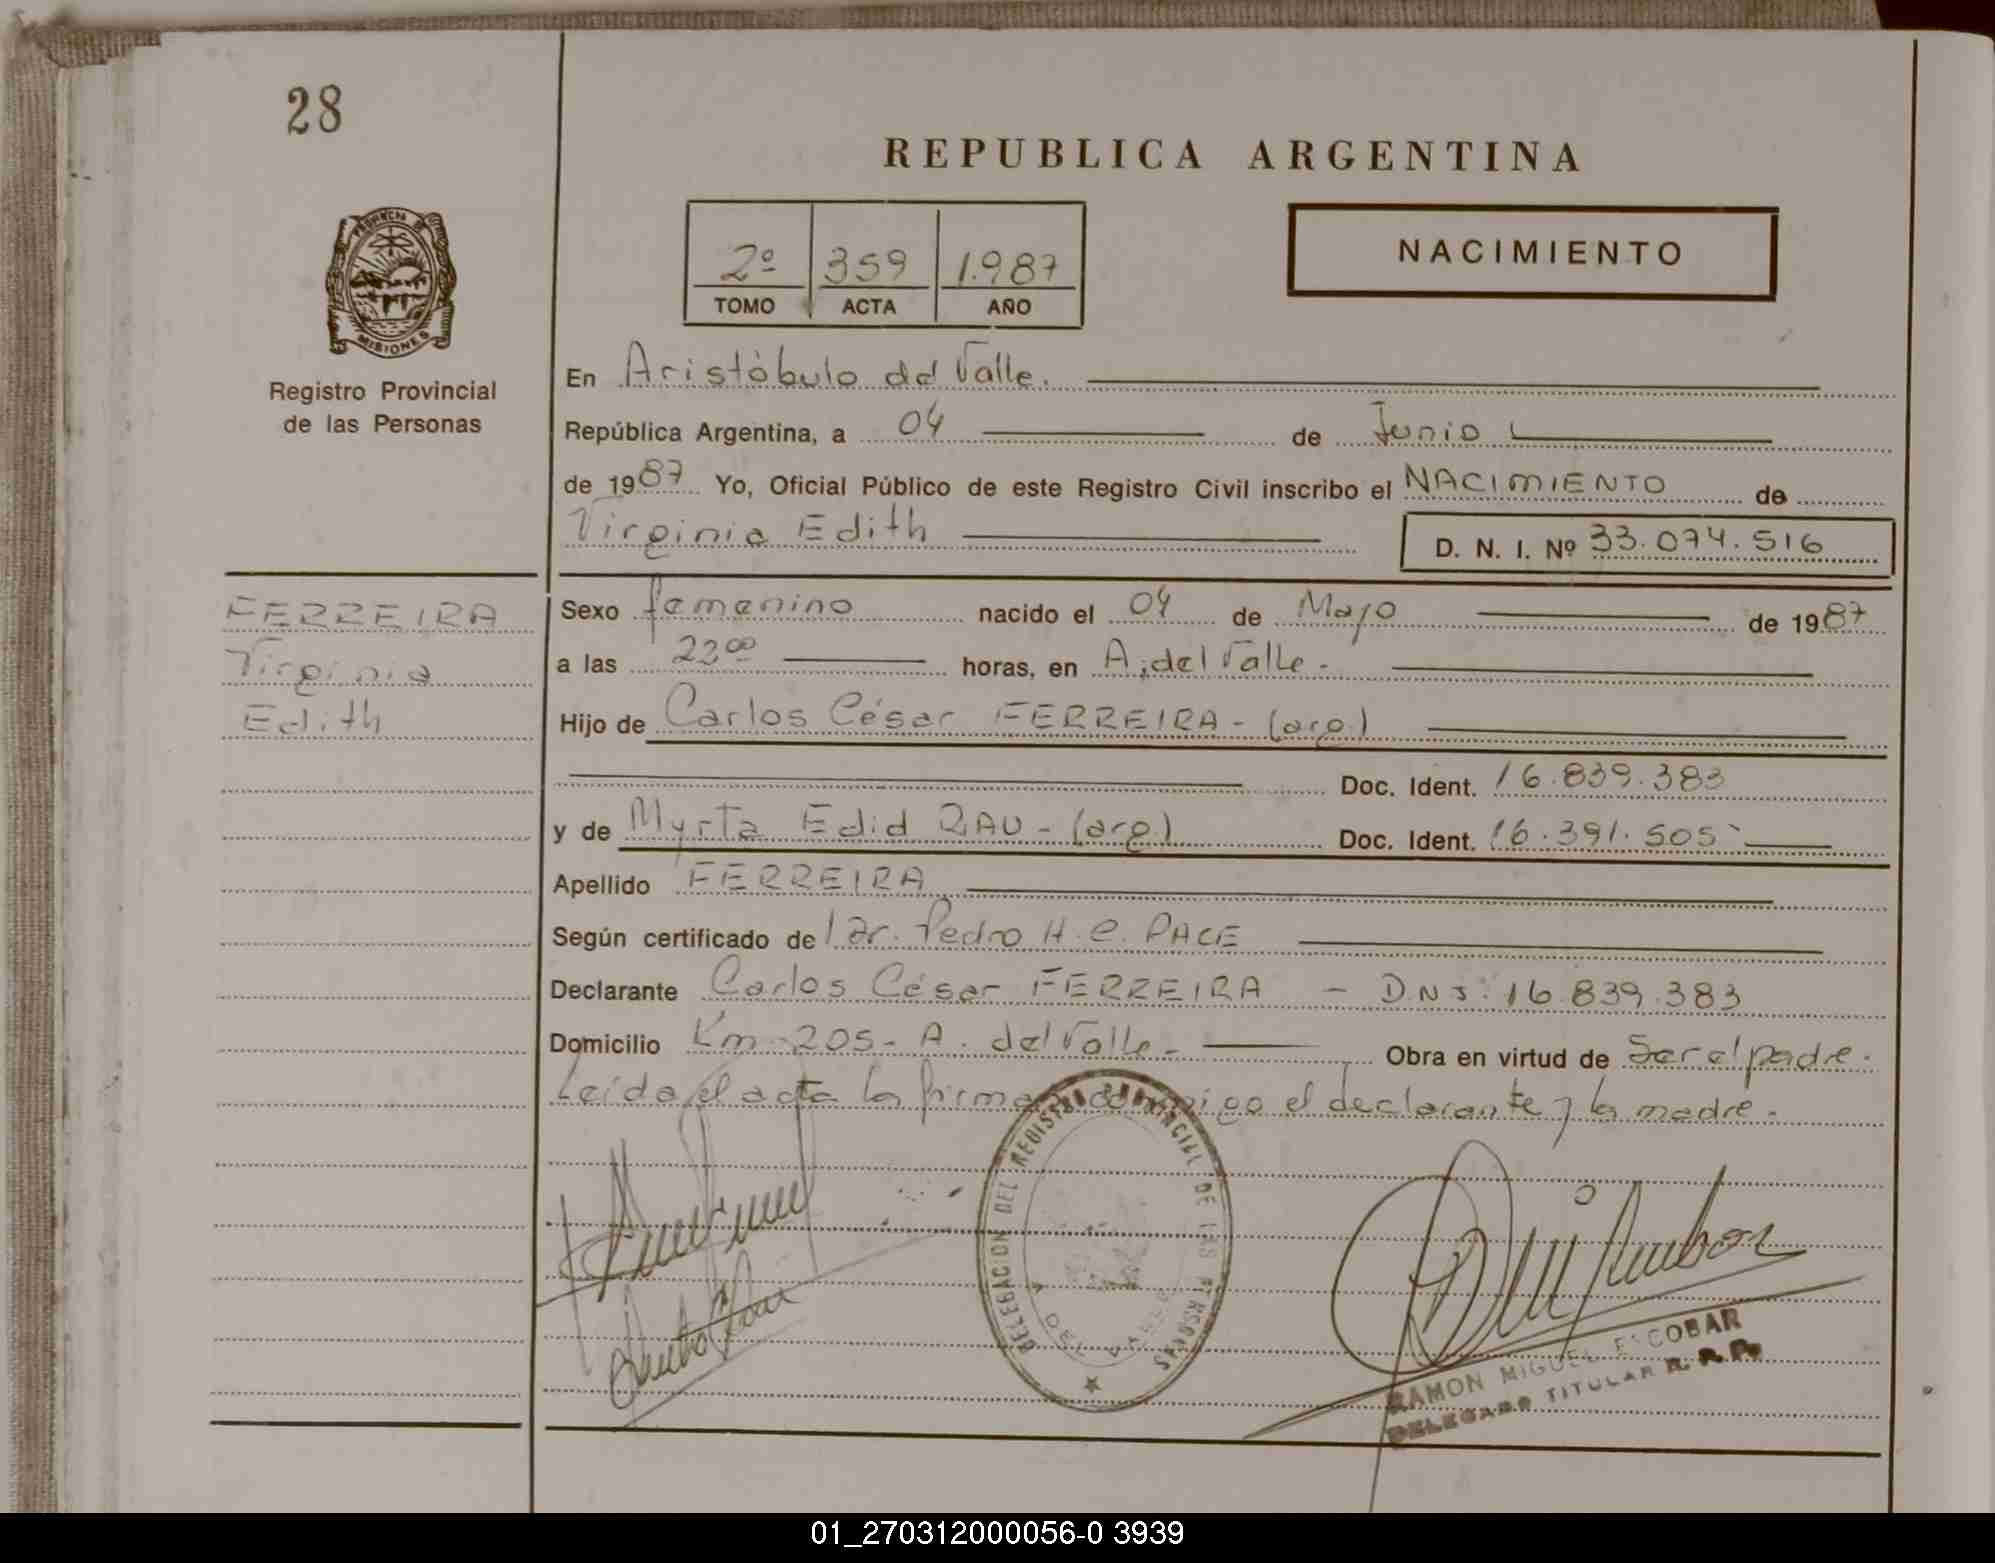 28
REPUBLICA ARGENTINA
PROVINCIA DE
MISIONES
Registro Provincial
de las Personas
2º 359 1.987
TOMO ACTA AÑO
NACIMIENTO
En Aristóbulo del Valle.
República Argentina, a 04 de Junio
de 1987 Yo, Oficial Público de este Registro Civil inscribo el NACIMIENTO de
Virginia Edith
D. N. I. Nº 33.074.516
FERREIRA
Virginia
Edith
Sexo femenino nacido el 04 de Mayo de 1987
a las 22⁰⁰ horas, en A. del Valle.-
Hijo de Carlos César FERREIRA - (arg.)
Doc. Ident. 16.839.383
y de Myrta Edid RAU - (arg.) Doc. Ident. 16.391.505
Apellido FERREIRA
Según certificado del Dr. Pedro H. C. PACE
Declarante Carlos César FERREIRA - D.N.I. 16.839.383
Domicilio Km. 205 - A. del Valle - Obra en virtud de Ser el padre.
Leída el acta la firma conmigo el declarante y la madre.
DELEGACION DEL REGISTRO PROVINCIAL DE LAS PERSONAS
A. DEL VALLE
RAMON MIGUEL ESCOBAR
DELEGADO TITULAR R. R. P.
01_270312000056-0 3939